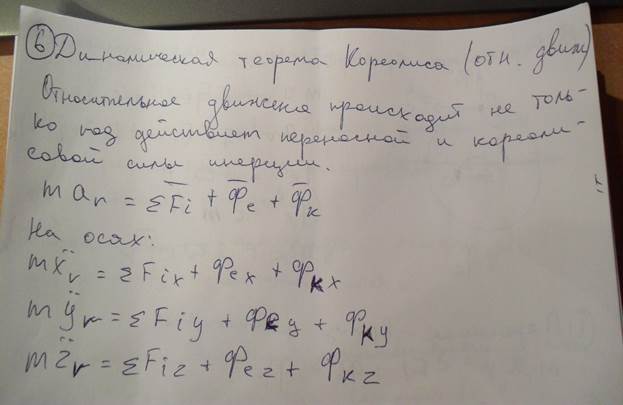 6 Динамическая теорема Кореолиса (отн. движ)
Относительное движение происходит не толь-
ко под действием переносной и кореоли-
совой силы инерции.
m a_r = Σ F̅i + Ф̅e + Ф̅к
На осях:
mẍ_r = ΣFix + Фex + Фкx
mÿ_r = ΣFiy + Фey + Фкy
mz̈_r = ΣFiz + Фez + Фкz